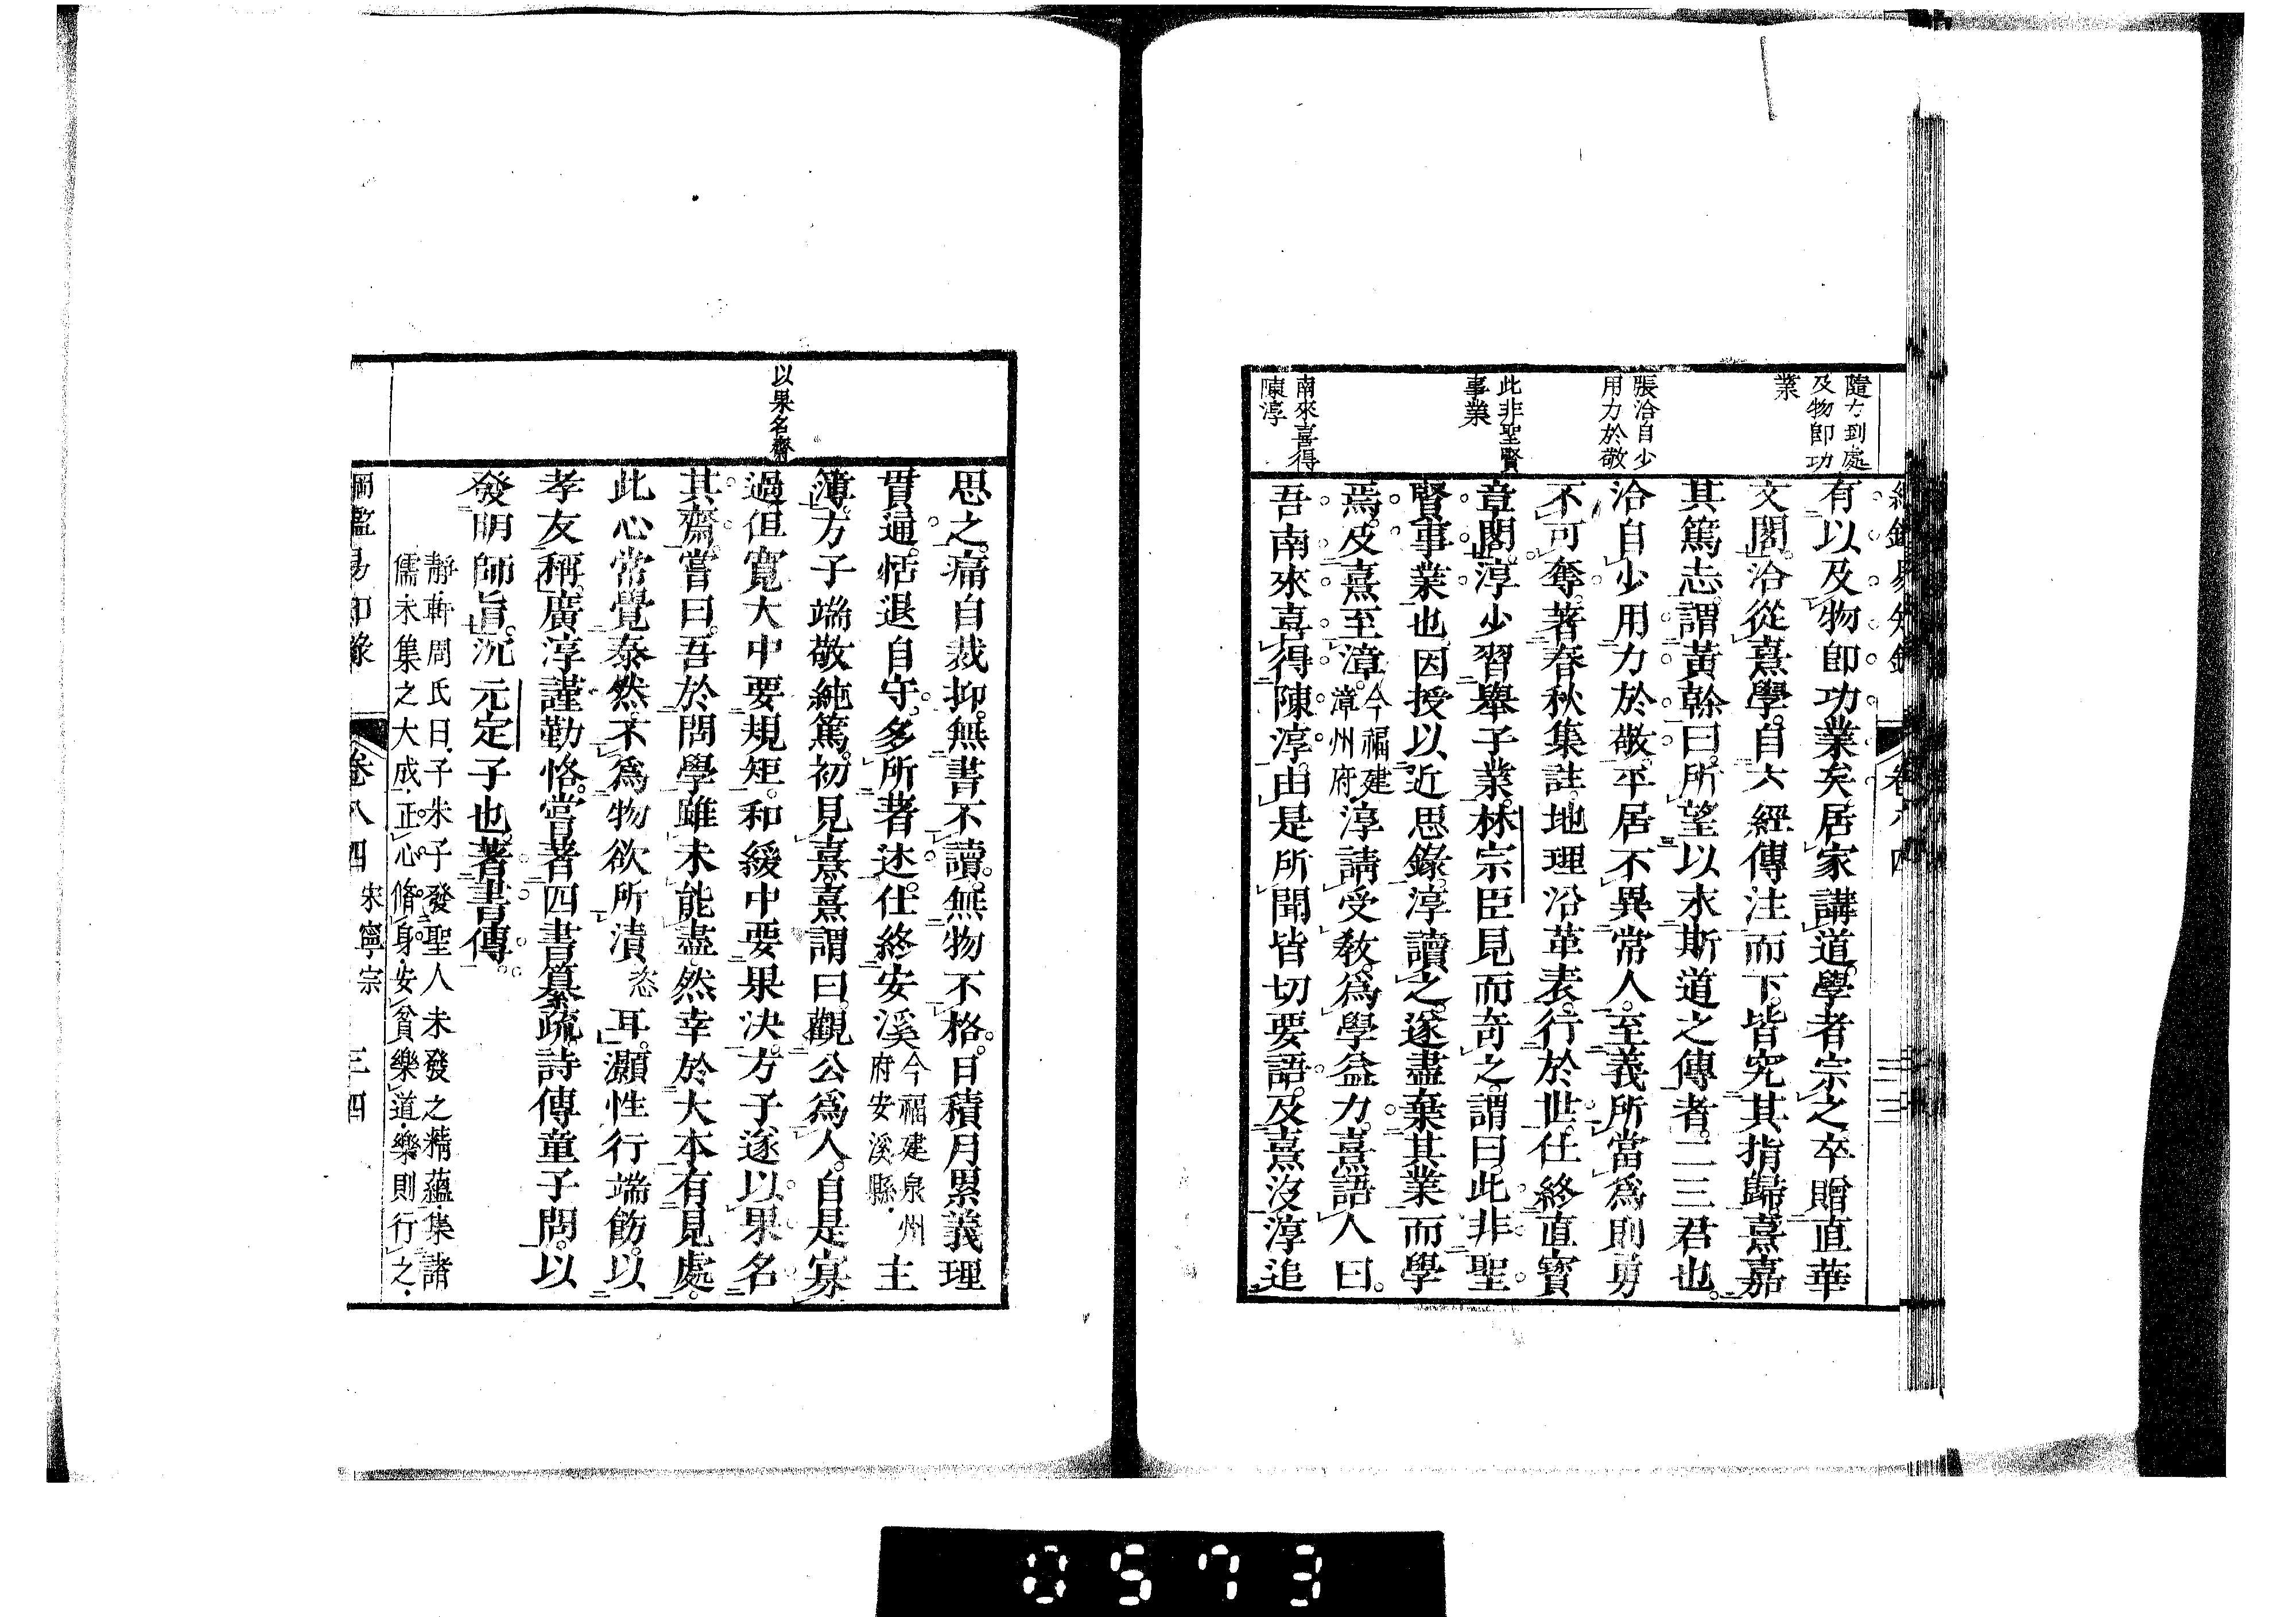 隨方到處
及物即功
業
張洽自少
用力於敬
此非聖賢
事業
南來喜得
陳淳
有以及物即功業矣居家講道學者宗之卒贈直華
文閣洽從熹學自六經傳注而下皆究其指歸熹嘉
其篤志謂黃榦曰所望以永斯道之傳者二三君也
洽自少用力於敬平居不異常人至義所當爲則勇
不可奪著春秋集註地理沿革表行於世仕終直寶
章閣淳少習舉子業林宗臣見而奇之謂曰此非聖
賢事業也因授以近思錄淳讀之遂盡棄其業而學
焉及熹至漳今福建漳州府淳請受教爲學益力熹語人曰
吾南來喜得陳淳由是所聞皆切要語及熹沒淳追
以果名齋
思之痛自裁抑無書不讀無物不格日積月累義理
貫通恬退自守多所著述仕終安溪今福建泉州府安溪縣主
簿方子端敬純篤初見熹熹謂曰觀公爲人自是寡
過但寬大中要規矩和緩中要果決方子遂以果名
其齋嘗曰吾於問學雖未能盡然幸於大本有見處
此心常覺泰然不爲物欲所漬恣耳灝性行端飭以
孝友稱廣淳謹勤恪嘗著四書纂疏詩傳童子問以
發明師旨沉元定子也著書傳
靜軒周氏曰子朱子發聖人未發之精蘊集諸
儒未集之大成正心脩身安貧樂道樂則行之
綱鑑易知錄 卷八四 宋寧宗 三四